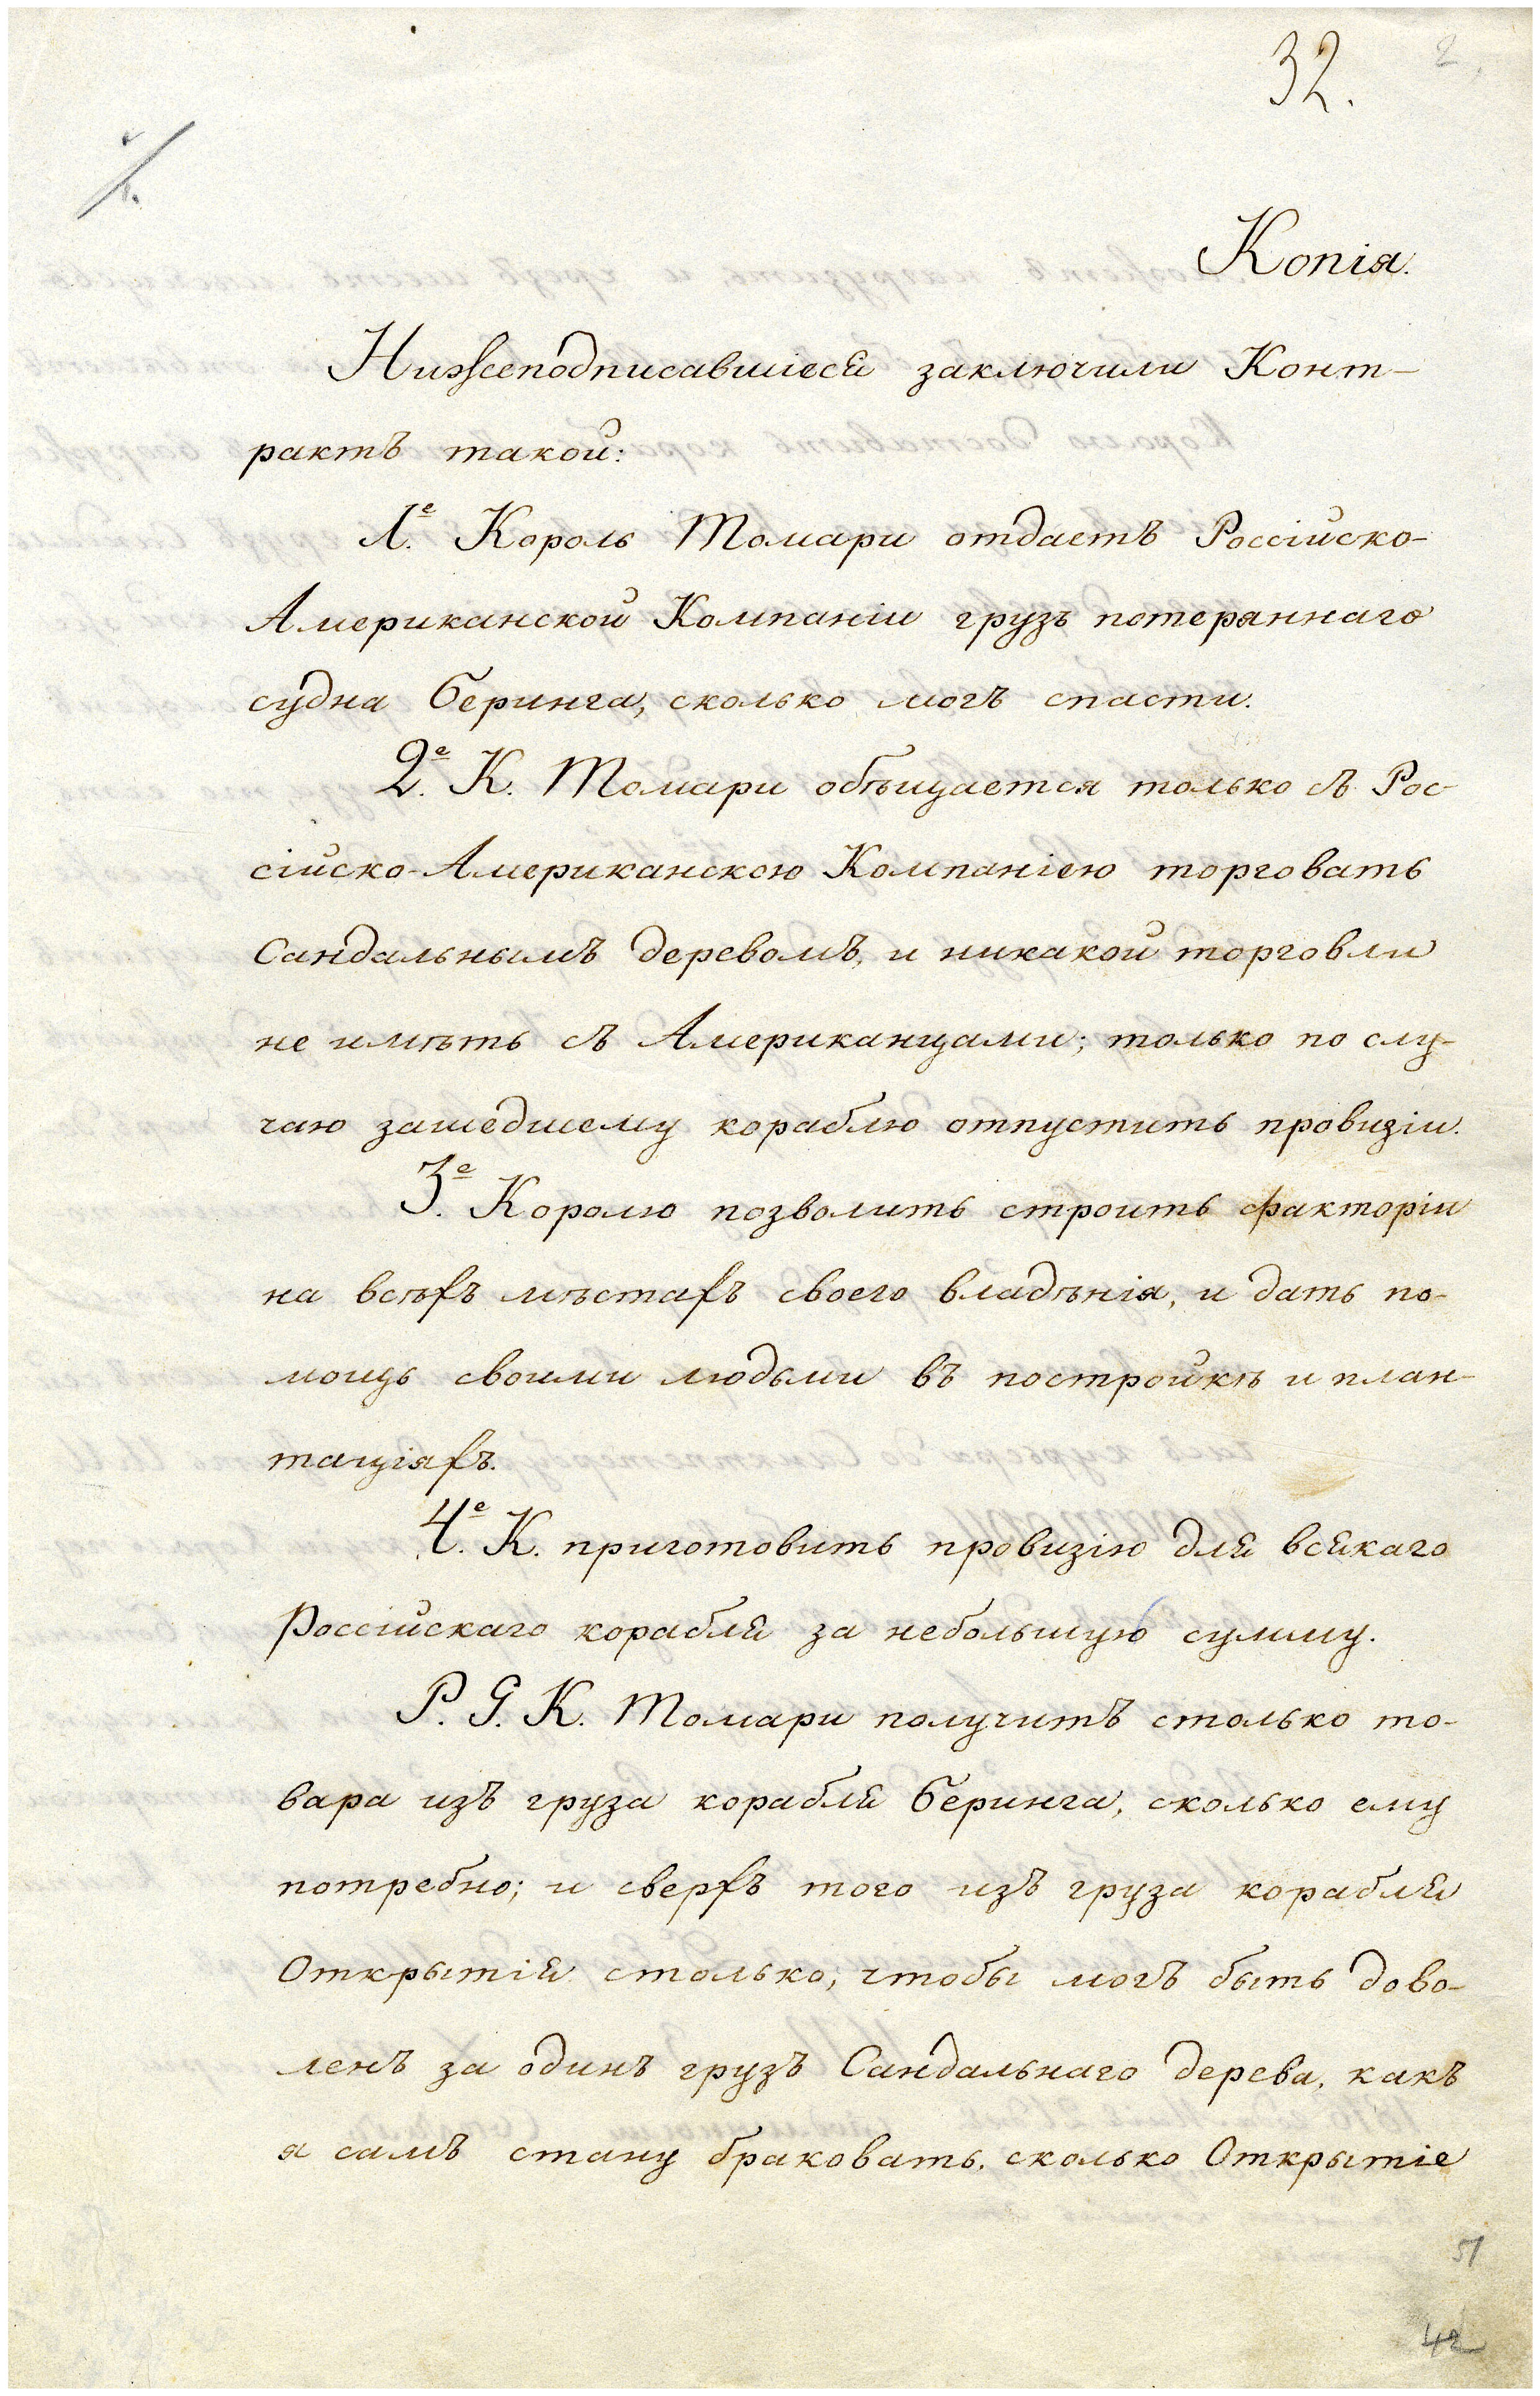 32.
2.
Копія.
Нижеподписавшіеся заключили Конт-
рактъ такой:
1.е Король Томари отдаетъ Россійско-
Американской Компаніи грузъ потеряннаго
судна Беринга, сколько могъ спасти.
2.е К. Томари обѣщается только съ Рос-
сійско-Американскою Компаніею торговать
Сандальнымъ деревомъ, и никакой торговли
не имѣть съ Американцами; только по слу-
чаю зашедшему кораблю отпустить провизіи.
3.е Королю позволить строить факторіи
на всѣхъ мѣстахъ своего владѣнія, и дать по-
мощь своими людьми въ постройкѣ и план-
таціяхъ.
4.е К. приготовить провизію для всякаго
Россійскаго корабля за небольшую сумму.
P. S. К. Томари получитъ столько то-
вара изъ груза корабля Беринга, сколько ему
потребно; и сверхъ того изъ груза корабля
Открытія столько, чтобы могъ быть дово-
ленъ за одинъ грузъ Сандальнаго дерева, какъ
я самъ стану браковать, сколько Открытіе
51
42